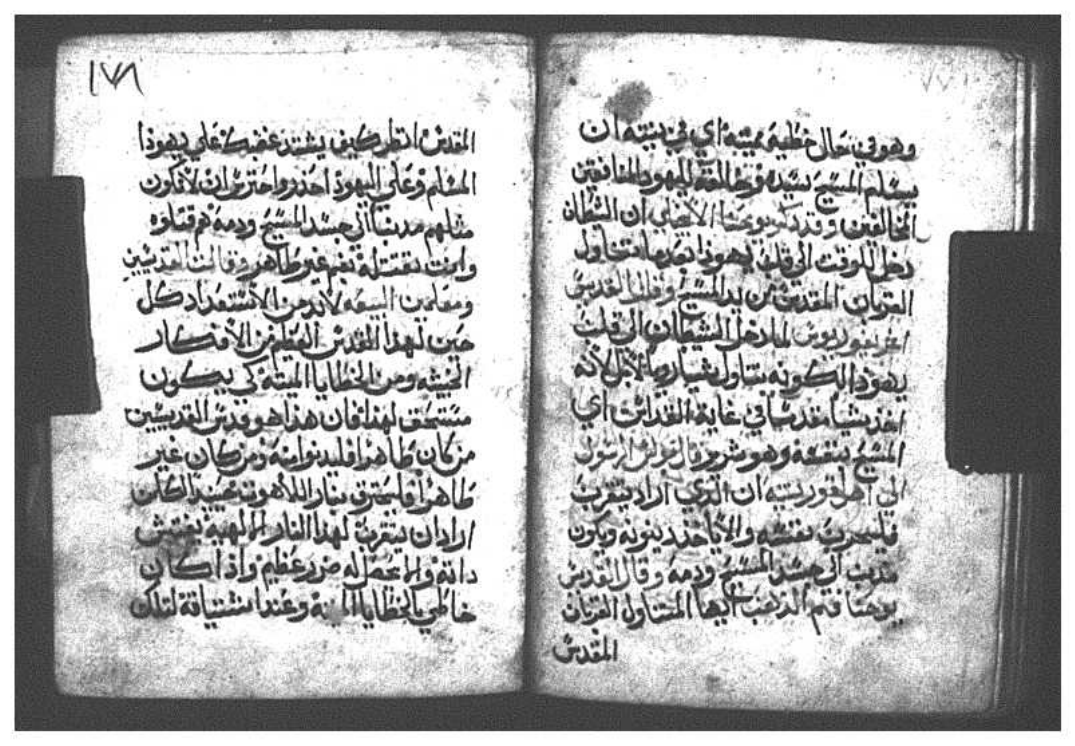 وهو في حال خطية مميتة اي في نيته ان
يسلم المسيح سيده ومخالفة لليهود المنافقين
المخالفين وقد ذكر يوحنا الانجيلي ان الشيطان
دخل للوقت الي قلب يهوذا بعدما تناول
القربان المقدس من يد المسيح وقال القديس
لماذا دخل الشيطان الي قلب
يهوذا لكونه تناول شيا رديا لا بل لانه
اخذ شيا مقدسا في غاية القداسة اي
المسيح نفسه وهو شرير قال بولس الرسول
الي اهل قورنتيه ان الذي اراد يتقرب
فليجرب نفسه والا ياخذ دينونه ويكون
مذنب الي جسد المسيح ودمه وقال القديس
يوحنا فم الذهب ايها المتناول القربان
المقدس
١٧٨
المقدس انظر كيف يشتد غضبك علي يهوذا
المسلم وعلي اليهود احذر واحترس ان لا تكون
مثلهم مذنبا الي جسد المسيح ودمه هم قتلوه
وانت تقتبله بفم غير طاهر وقالت القديسين
ومعلمين البيعه لا بد من الاستعداد كل
حين لهذا المقدس العظيم من الافكار
الخبيثه ومن الخطايا المميتة كي يكون
مستحق لهذا فان هذا هو قدس القديسين
من كان طاهرا فليدنوا منه ومن كان غير
طاهرا فليحترق بنار اللاهوت عبيد الكاهن
اراد ان يتقرب لهذا النار الالهية يفتش
ذاته والا يحصل له ضرر عظيم واذا كان
خاطي بالخطايا وعند اشتياقه لتلك